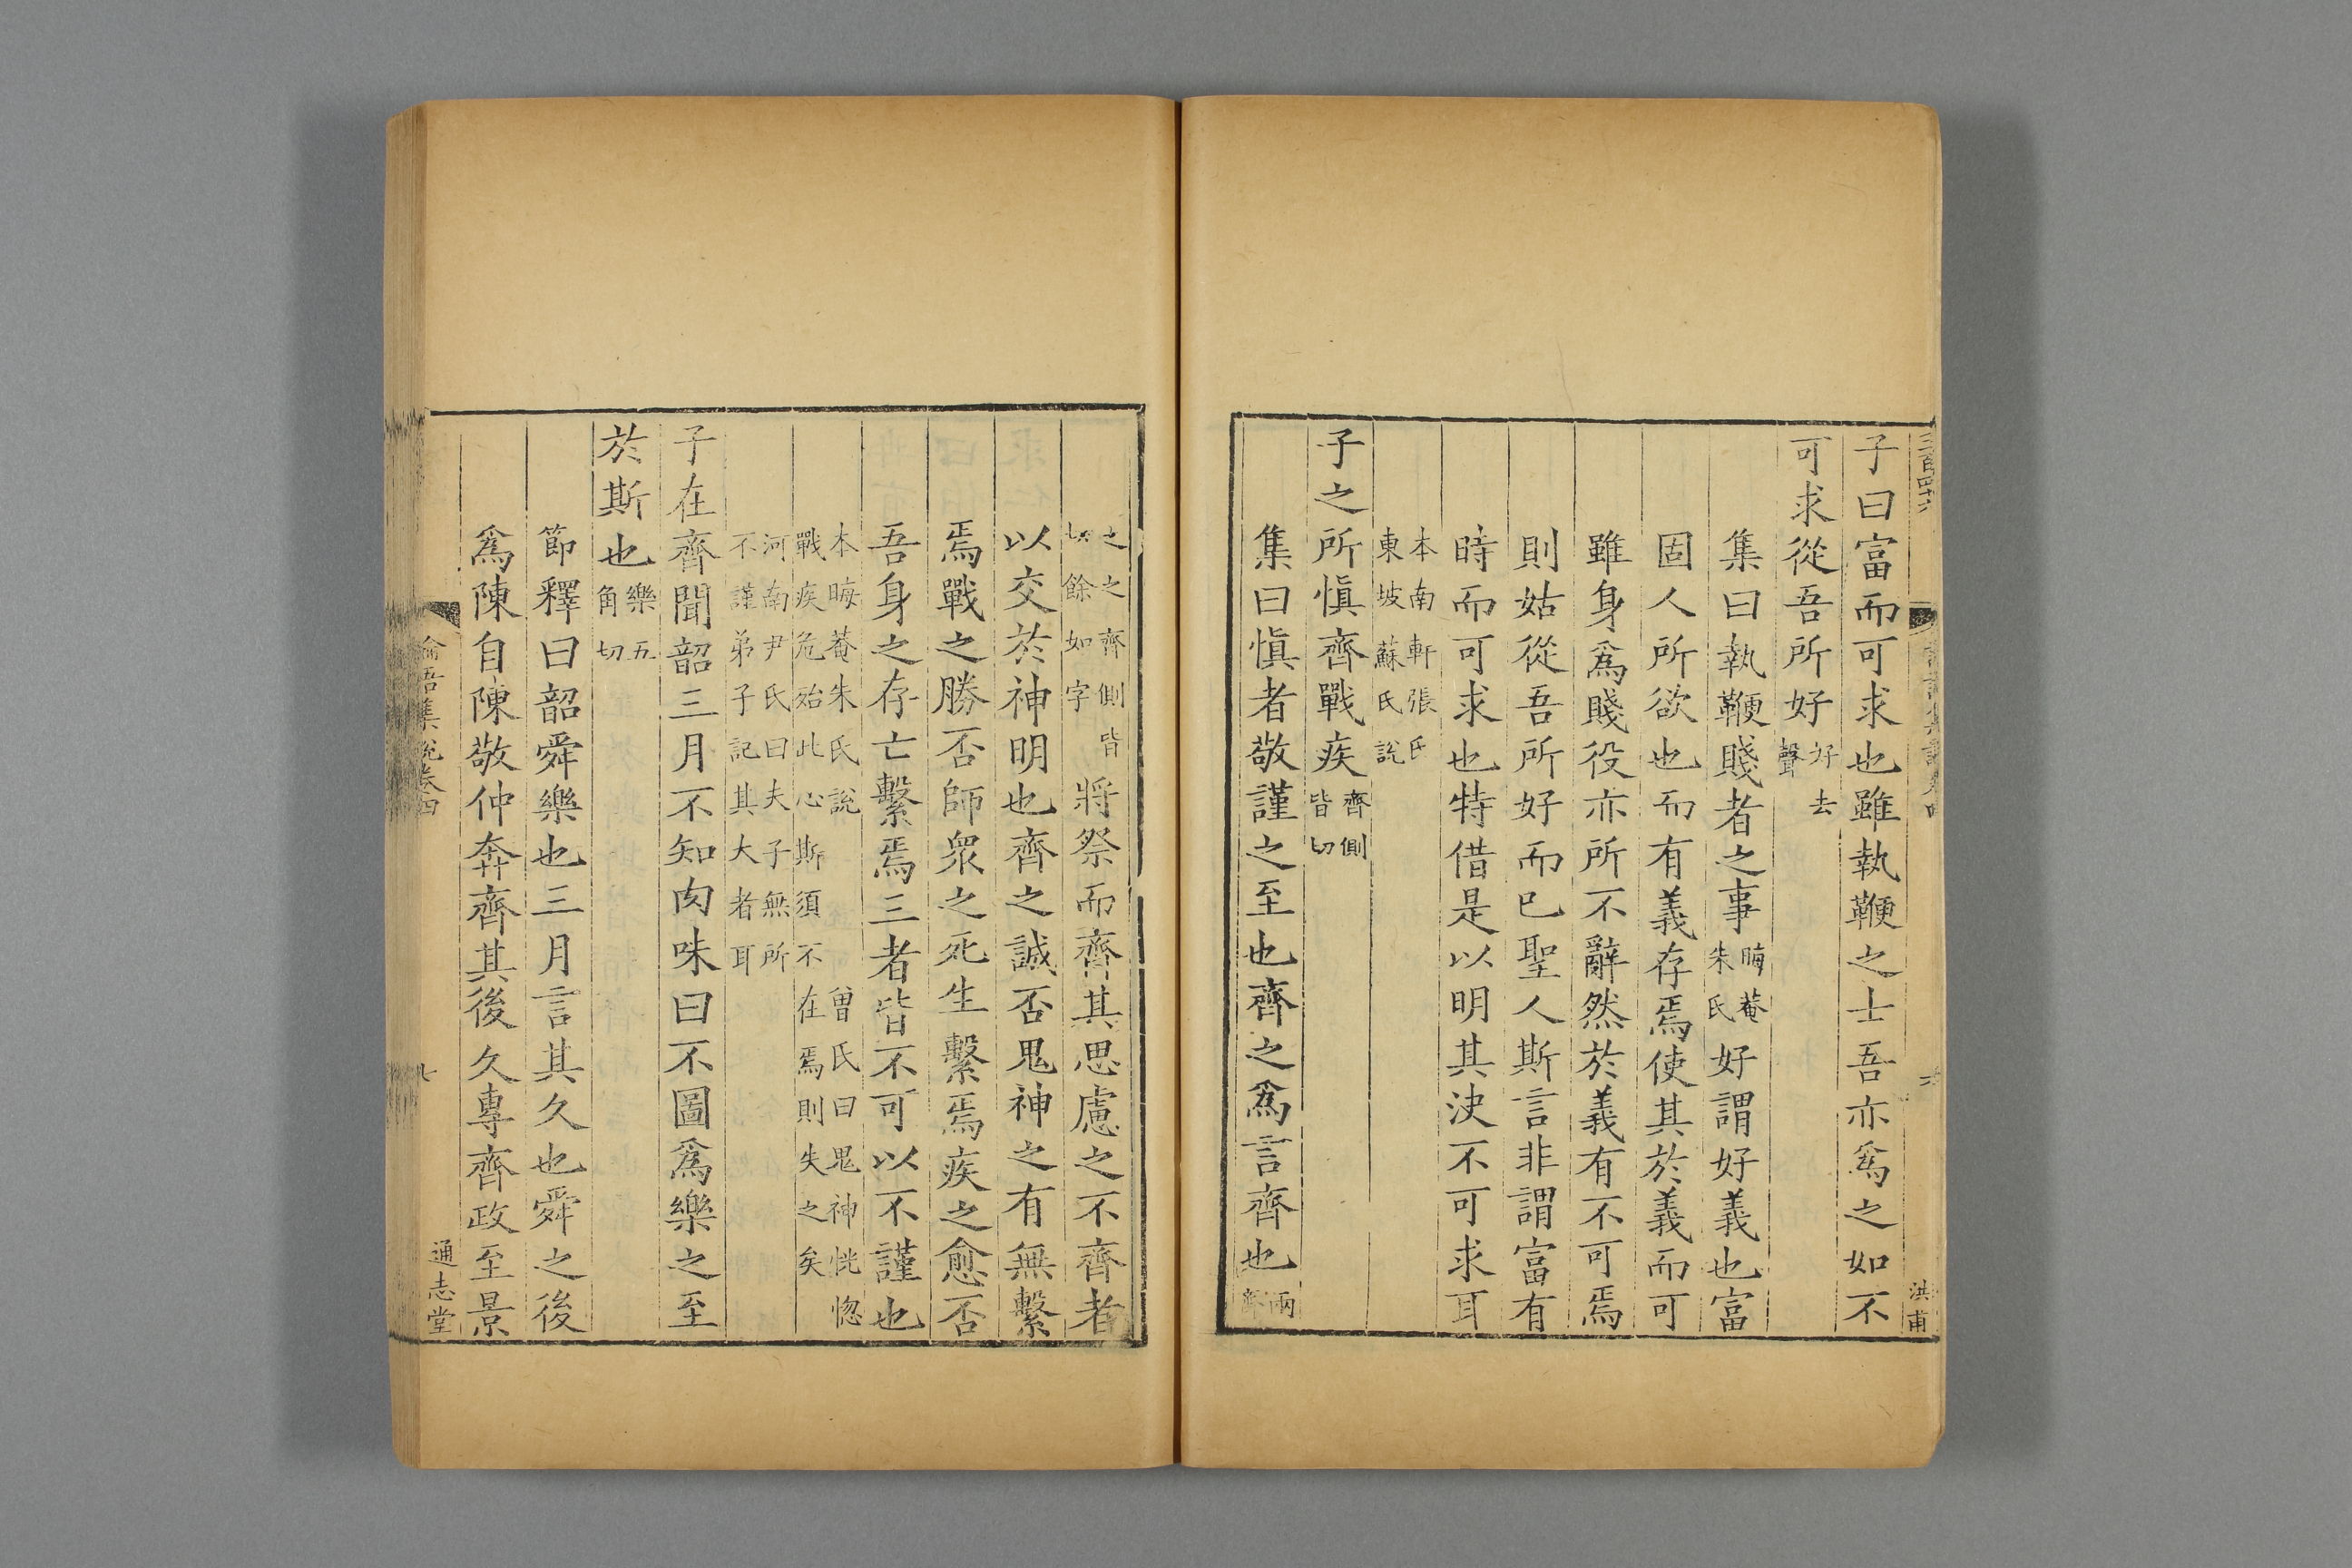 三百四十六
洪甫
子曰富而可求也雖執鞭之士吾亦爲之如不
可求從吾所好好去聲
集曰執鞭賤者之事晦菴朱氏好謂好義也富
固人所欲也而有義存焉使其於義而可
雖身爲賤役亦所不辭然於義有不可焉
則姑從吾所好而已聖人斯言非謂富有
時而可求也特借是以明其決不可求耳
本南軒張氏東坡蘇氏說
子之所愼齊戰疾齊側皆切
集曰愼者敬謹之至也齊之爲言齊也兩
之之齊側皆切餘如字將祭而齊其思慮之不齊者
以交於神明也齊之誠否鬼神之有無繫
焉戰之勝否師衆之死生繫焉疾之愈否
吾身之存亡繫焉三者皆不可以不謹也
本晦菴朱氏說 曾氏曰鬼神恍惚
戰疾危殆此心斯須不在焉則失之矣
河南尹氏曰夫子無所
不謹弟子記其大者耳
子在齊聞韶三月不知肉味曰不圖爲樂之至
於斯也樂五角切
節釋曰韶舜樂也三月言其久也舜之後
爲陳自陳敬仲奔齊其後久專齊政至景
論語集說卷四
七
通志堂